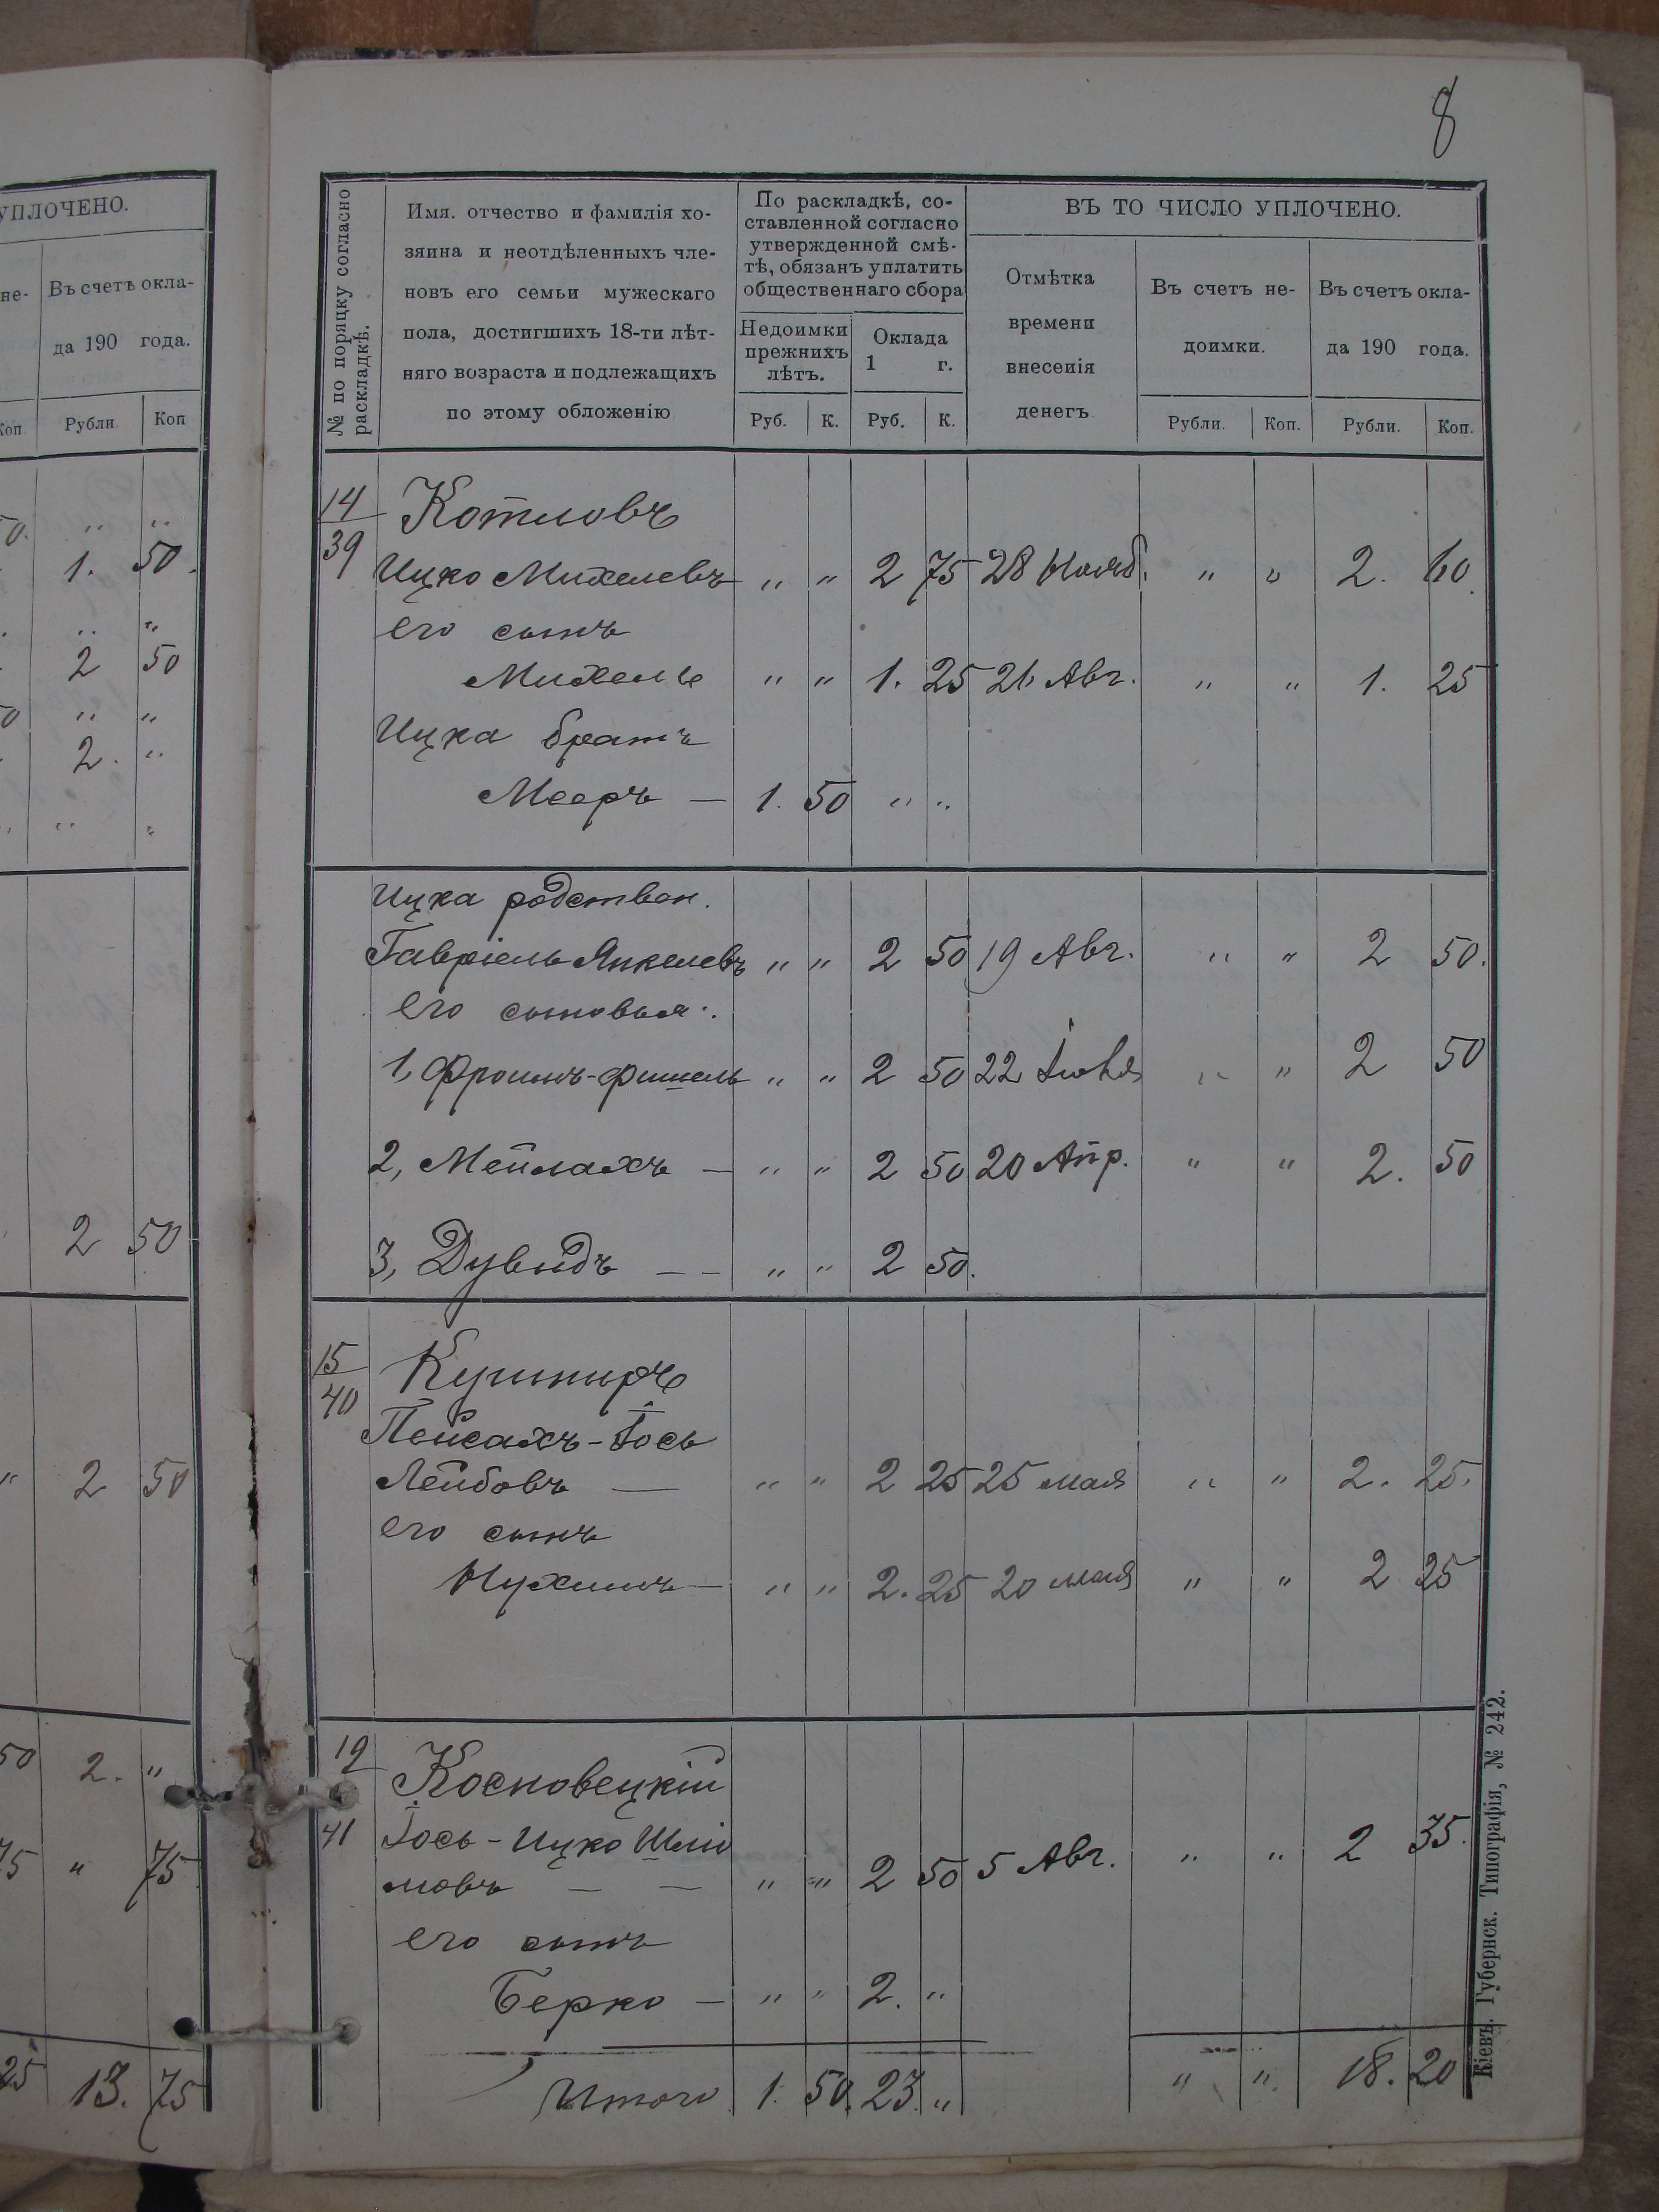 8
УПЛОЧЕНО.
не-
Въ счетъ окла-
да 190 года.
Коп
Рубли
Коп
1. 50.
2 50
2. "
2 50
" 2 50
50 2. "
75 " 75
25 13. 75
№ по поряцку согласно
раскладкѣ.
Имя. отчество и фамилія хо-
зяина и неотдѣленныхъ чле-
новъ его семьи мужескаго
пола, достигшихъ 18-ти лѣт-
няго возраста и подлежащихъ
по этому обложенію
По раскладкѣ, со-
ставленной согласно
утвержденной смѣ-
тѣ, обязанъ уплатить
общественнаго сбора
Недоимки
прежнихъ
лѣтъ.
Оклада
1 г.
Руб. К. Руб. К.
ВЪ ТО ЧИСЛО УПЛОЧЕНО.
Отмѣтка
времени
внесенія
денегъ
Въ счетъ не-
доимки.
Въ счетъ окла-
да 190 года.
Рубли. Коп. Рубли. Коп.
14
39
Котловъ
Ицко Михелевъ " " 2 75 28 Нояб. " " 2. 60.
его сынъ
Михель " " 1. 25 21 Авг. " " 1. 25
Ицка братъ
Мееръ — 1. 50 " "
Ицка родствен.
Гавріель Янкелевъ " " 2 50 19 Авг. " " 2 50.
его сыновья:
1, Фроимъ-Фишель " " 2 50 22 " " 2 50
2, Мейлахъ — " " 2 50 20 Апр. " " 2. 50
3, Дувидъ — — " " 2 50.
15
40
Кушниръ
Пейсахъ-Іось
Лейбовъ — " " 2 25 25 мая " " 2. 25.
его сынъ
Нухимъ — " " 2. 25 20 мая " " 2 25
19
41
Косновецкій
Іось-Ицко Шліо
мовъ — — " " 2 50 5 Авг. " " 2 35.
его сынъ
Берко — " " 2. "
Итого 1. 50. 23. " " " 18. 20
Кіевъ. Губернск. Типографія, № 242.